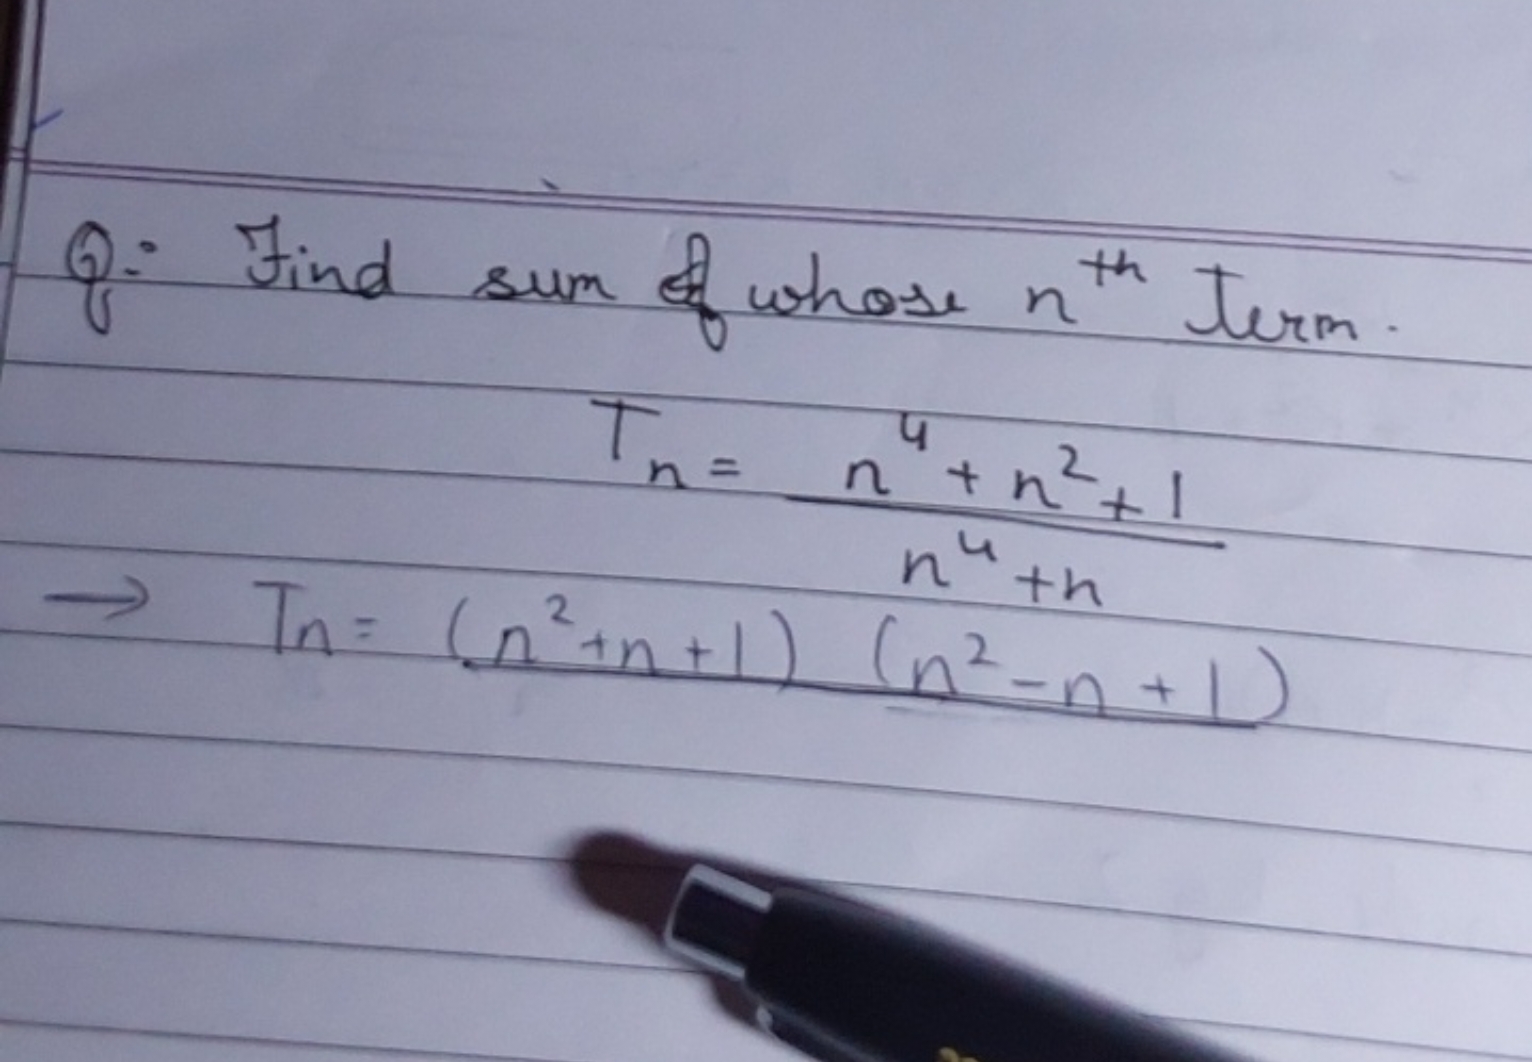 Q:- Find sum of whose nᵗʰ Term.
Tₙ = n⁴ + n² + 1
n⁴ + n
→ Tₙ = (n² + n + 1) (n² - n + 1)